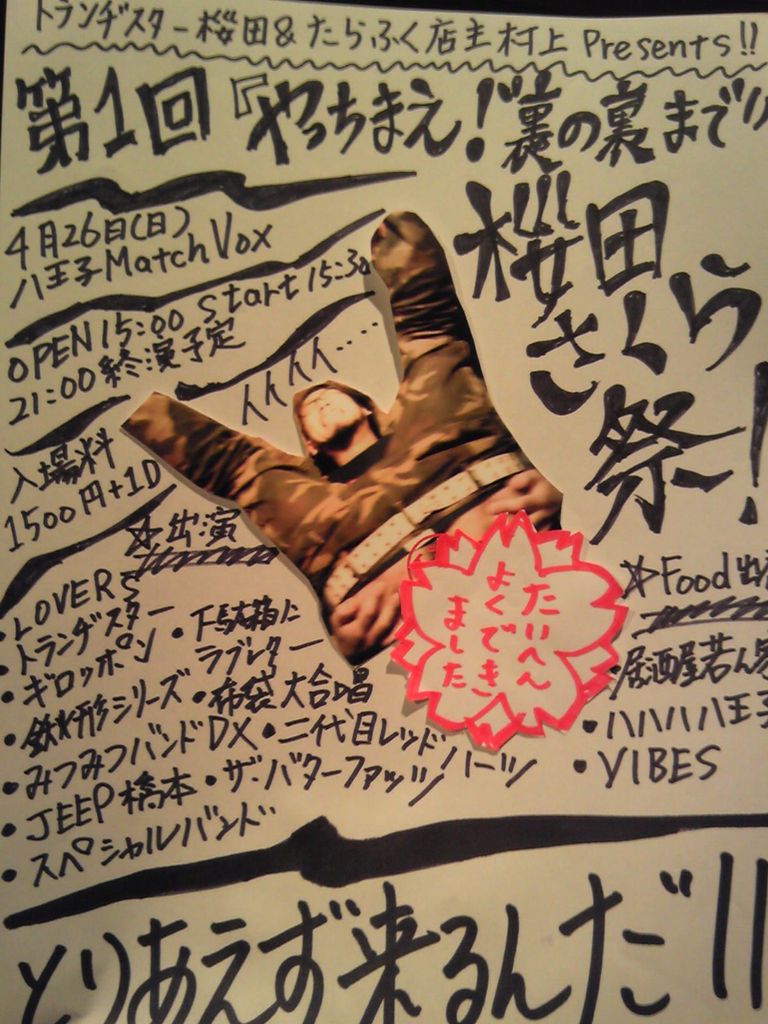 トランヂスター桜田&たらふく店主村上 Presents!!
第1回『やっちまえ!裏の裏まで!!
桜田
さくら
祭!
4月26日(日)
八王子MatchVox
OPEN15:00 Start15:30
21:00終演予定
人人人人.....
入場料
1500円+1D
☆出演
・LOVERS
・トランヂスター
・ギロッポン・下駄箱に
ラブレター
・鉄人形シリーズ・布袋大合唱
・みつみつバンドDX・二代目レッドハーツ
・JEEP橋本・ザ・バターファッツ
・スペシャルバンド
たいへん
よくでき
ました
☆Food出
・居酒屋若ん家
・ハハハ八王子
・VIBES
とりあえず来るんだ!!